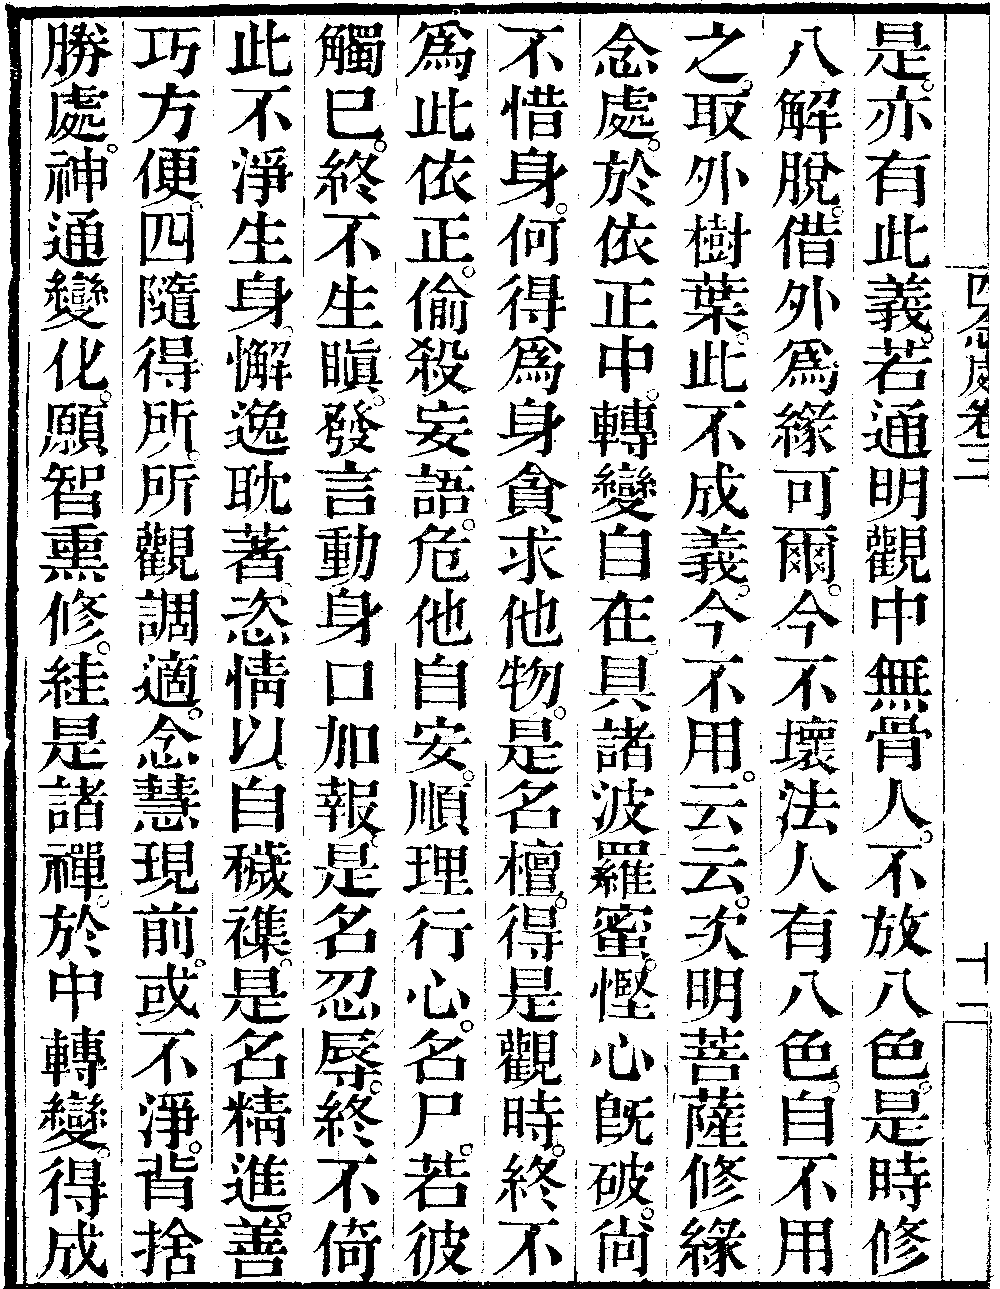 是。亦有此義。若通明觀中無骨人。不放八色。是時修
八解脫。借外爲緣可爾。今不壞法人有八色。自不用
之。取外樹葉。此不成義。今不用。云云。次明菩薩修緣
念處。於依正中。轉變自在具諸波羅蜜。慳心旣破。尙
不惜身。何得爲身貪求他物。是名檀。得是觀時。終不
爲此依正。偷殺妄語。危他自安。順理行心。名尸。若彼
觸已。終不生瞋。發言動身口加報。是名忍辱。終不倚
此不淨生身。懈逸耽著。恣情以自穢襍。是名精進。善
巧方便。四隨得所。所觀調適。念慧現前。或不淨。背捨
勝處。神通變化。願智熏修。絓是諸禪。於中轉變。得成
四念處卷三
十二